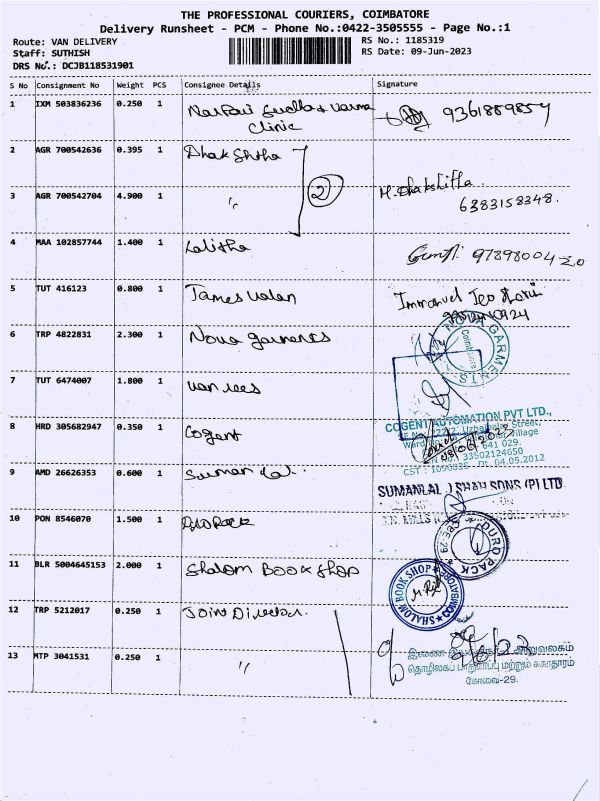 THE PROFESSIONAL COURIERS, COIMBATORE
Delivery Runsheet - PCM - Phone No.:0422-3505555 - Page No.:1
Route: VAN DELIVERY
RS No.: 1185319
Staff: SUTHISH
RS Date: 09-Jun-2023
DRS No.: DCJB118531901
S No Consignment No Weight PCS Consignee Details Signature
1 IXM 503836236 0.250 1
Clinic
9361889857
2 AGR 700542636 0.395 1 Dhakshtha
2
3 AGR 700542704 4.900 1 "
6383158348.
4 MAA 102857744 1.400 1 Lalitha
5 TUT 416123 0.800 1 James valan
Immanuel
6 TRP 4822831 2.300 1 Nova garments
NOVA GARMENTS
Coimbatore
7 TUT 6474007 1.800 1 van rees
8 HRD 305682947 0.350 1 Cogent
COGENT AUTOMATION PVT LTD.,
Village
641 029.
33502124650
CST : Dt. 04.05.2012
9 AMD 26626353 0.600 1 Suman Lal
SUMANLAL J SHAH SONS (P) LTD
10 PON 8546070 1.500 1 DuroPack
DURO PACK
11 BLR 5004645153 2.000 1 Shalom Book shop
SHALOM BOOK SHOP COIMBATORE
12 TRP 5212017 0.250 1 Joint Director
13 MTP 3041531 0.250 1 "
இணை அலுவலகம்
தொழிலகப் பாதுகாப்பு மற்றும் சுகாதாரம்
கோவை-29.